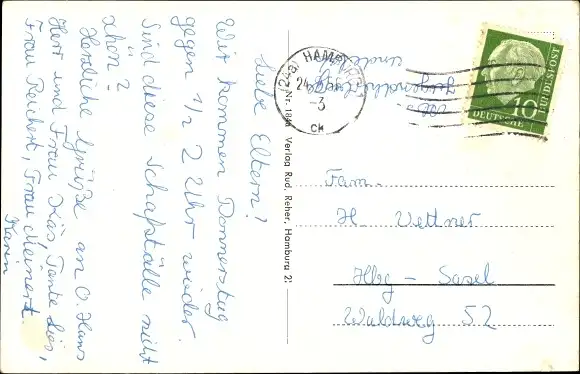 Liebe Eltern!
Wir kommen Donnerstag
gegen 1/2 2 Uhr wieder.
Sind diese Schafställe nicht
schön?
Herzliche Grüße an O. Hans
Herr und Frau Käs, Tante Lies,
Frau Reichert, Frau Meinert.
Karin
Nr. 18 Verlag Rud. Reher, Hamburg 2
(24a) HAMBURG 1
24.
-3
CK
DEUTSCHE BUNDESPOST
10
Fam.
H. Vettner
Hbg – Sasel
Waldweg 52